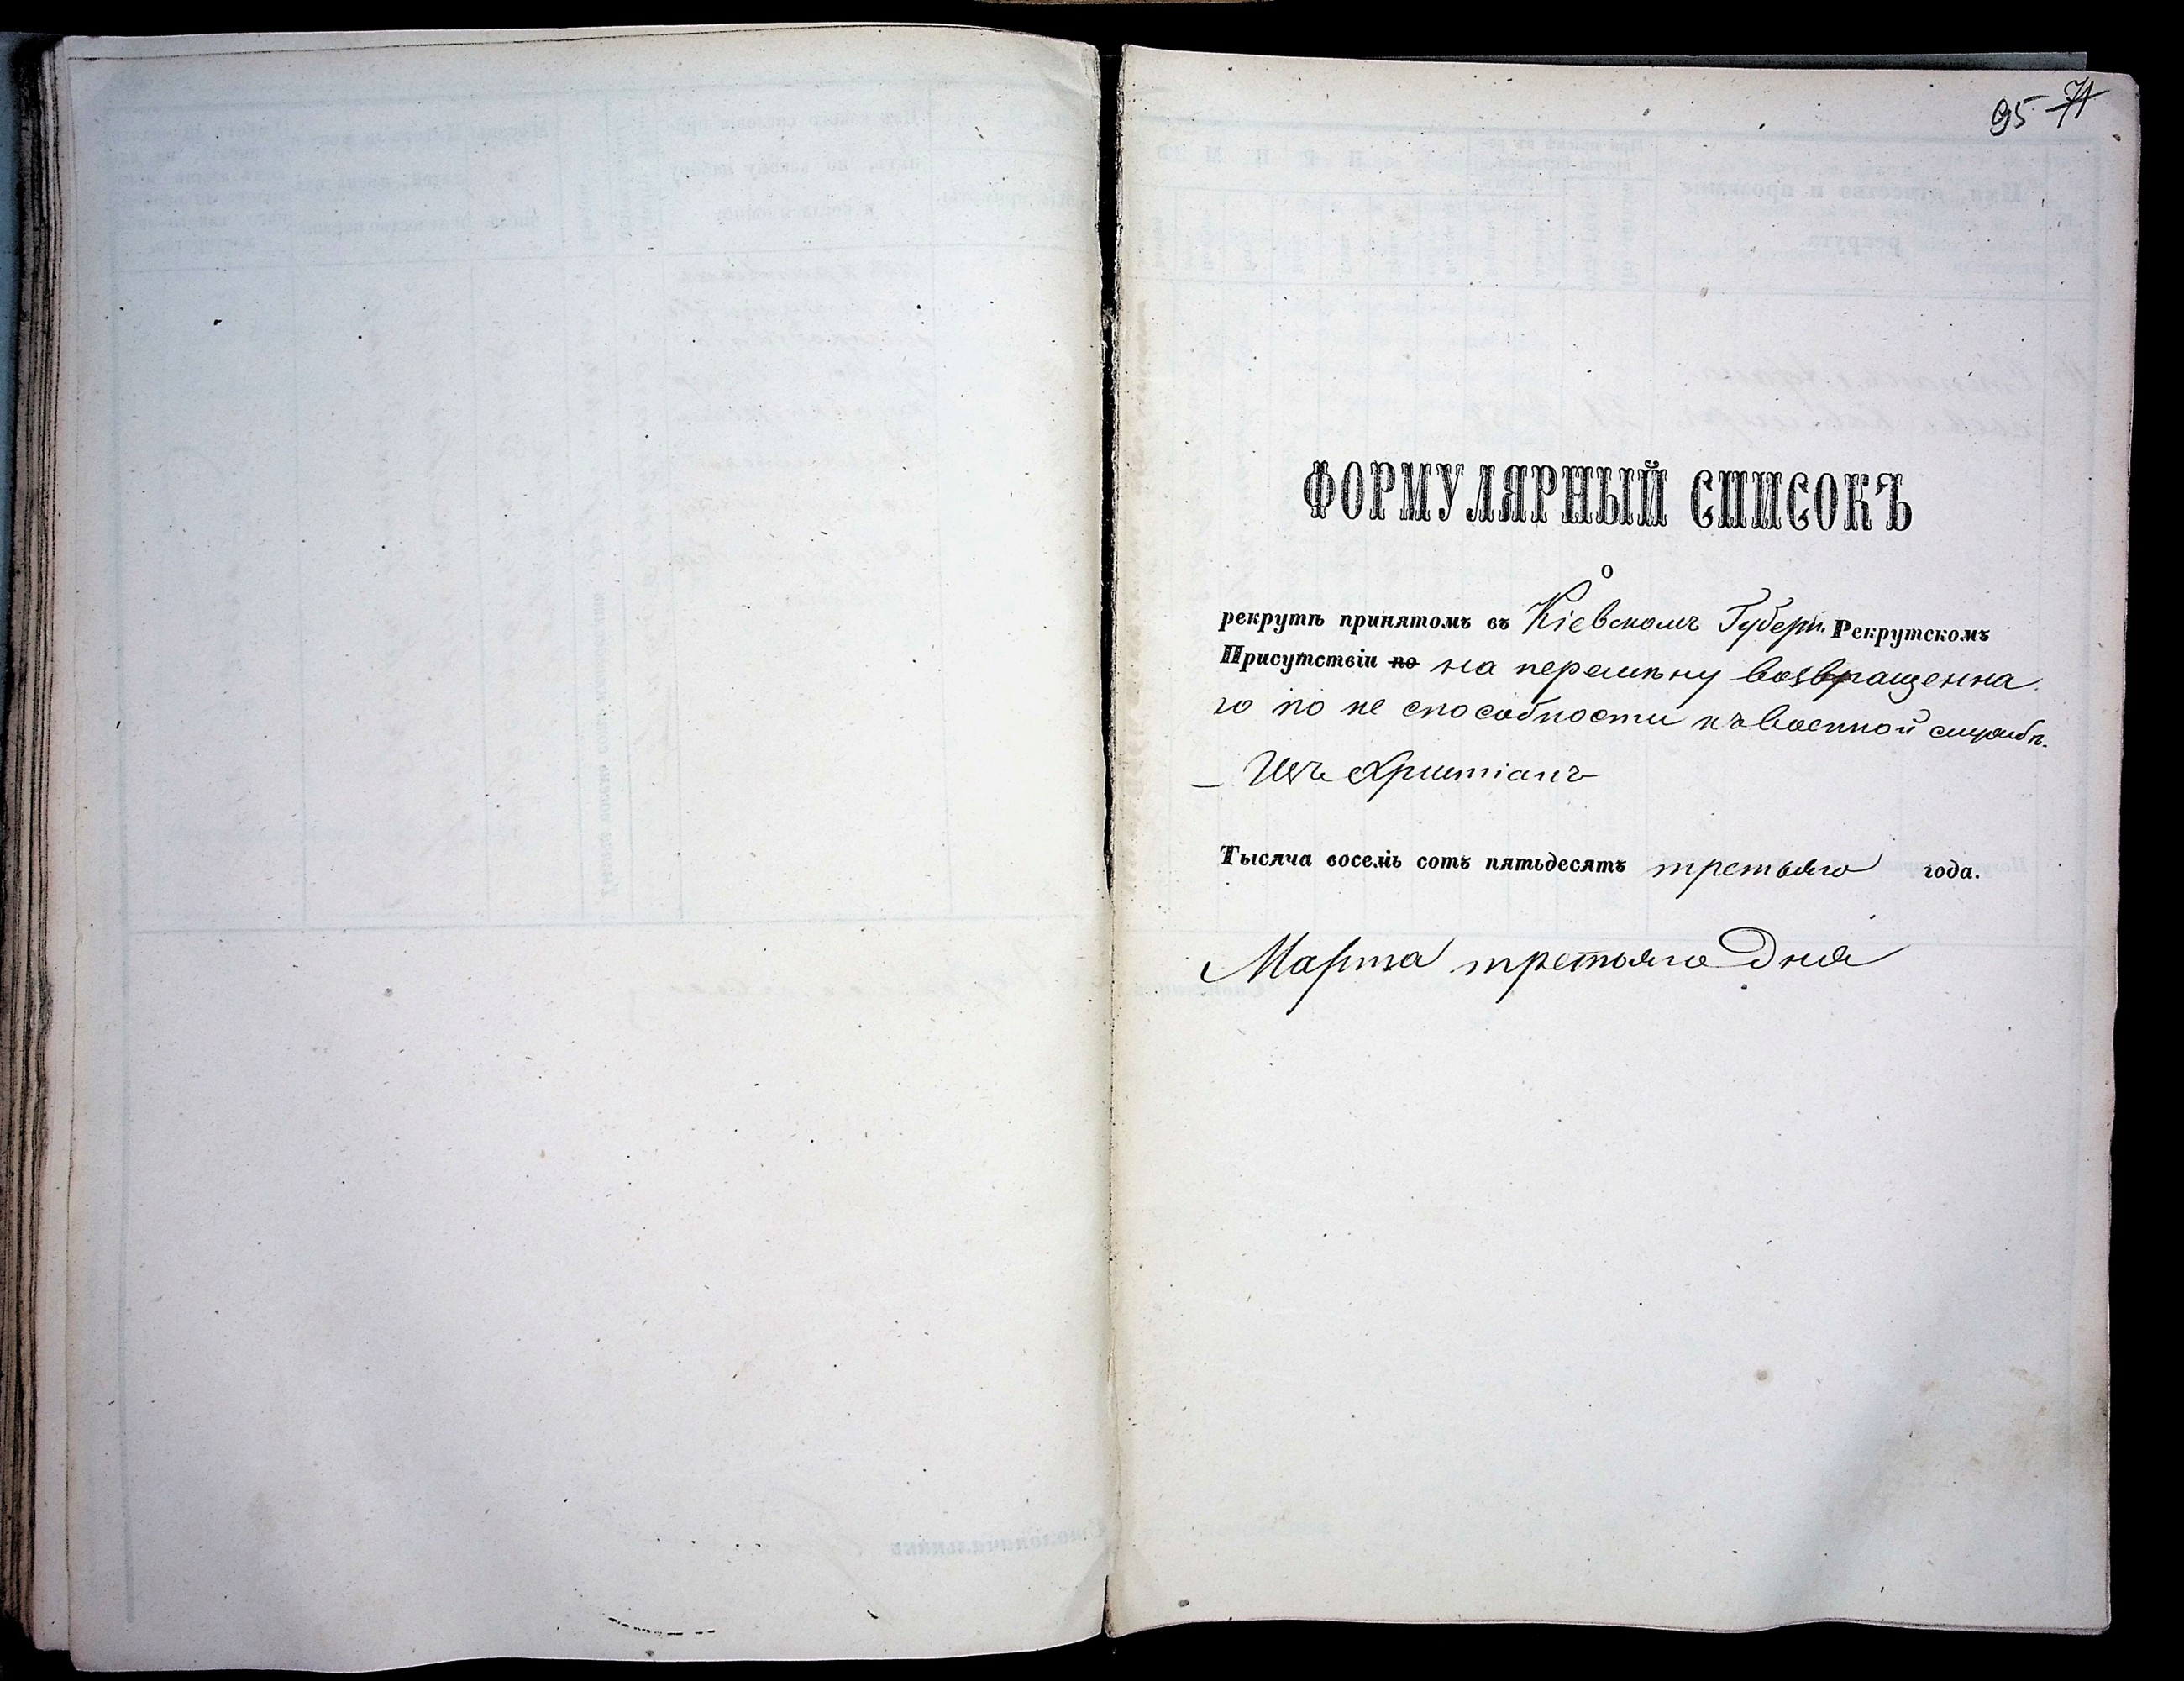 95 71
ФОРМУЛЯРНЫЙ СПИСОКЪ
о
рекрутѣ принятомъ въ Кіевскомъ Губерн. Рекрутскомъ
Присутствіи по на перемѣну возвращенна
го по не способности къ военной службѣ.
_ Изъ Христіанъ
Тысяча восемь сотъ пятьдесятъ третьяго года.
Марта третьяго дня